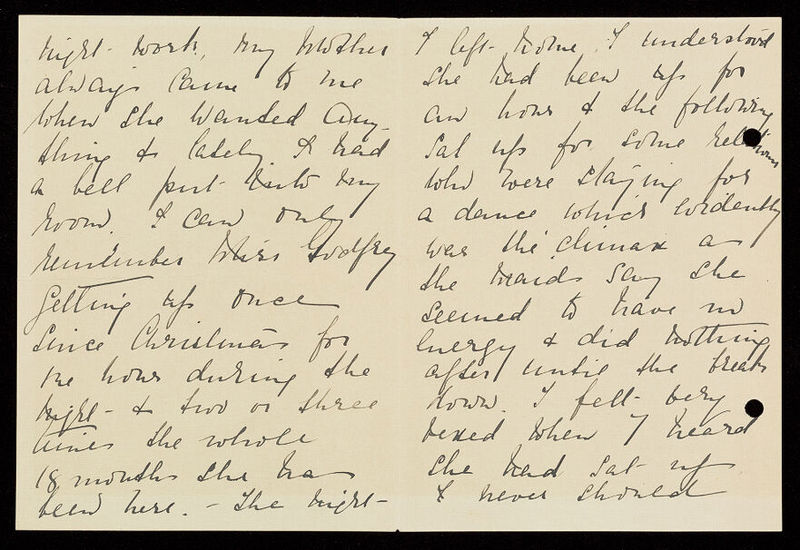 night work, my Mother
always came to me
when she wanted any-
thing & lately I had
a bell put into my
room. I can only
remember Miss Godfrey
getting up once
since Christmas for
the hour during the
night - & two or three
times the whole
18 months she has
been here. - The night -
I left home. I understood
she had been up for
an hour & the following
sat up for some relations
who were staying for
a dance which evidently
was the climax as
the maids say she
seemed to have no
energy & did nothing
after until the break
down. I felt very
vexed when I heard
she had sat up
I never should